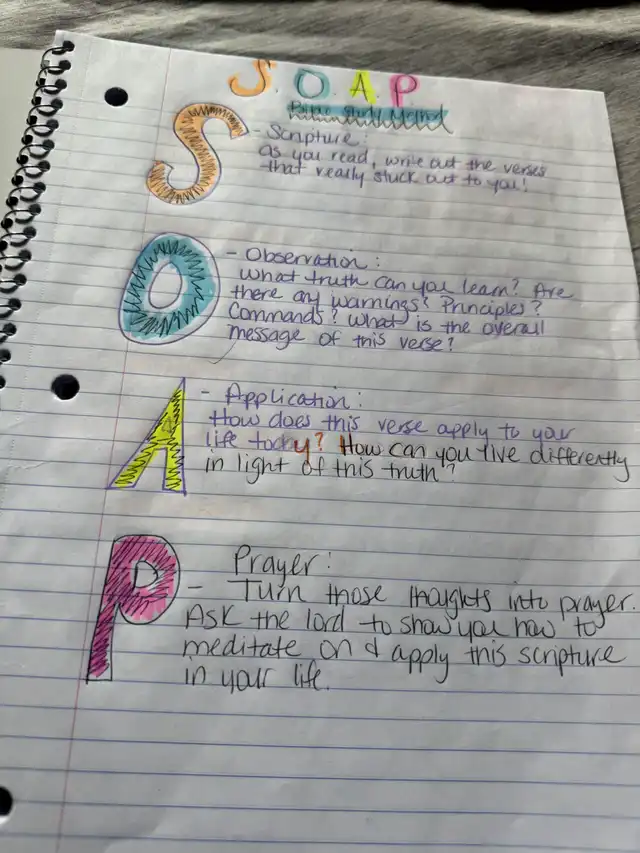 S. O. A. P.
Bible Study Method
S
- Scripture:
as you read, write out the verses
that really stuck out to you!
O
- Observation:
what truth can you learn? Are
there any warnings? Principles?
Commands? What is the overall
message of this verse?
A
- Application:
How does this verse apply to your
life today? How can you live differently
in light of this truth?
P
Prayer:
- Turn those thoughts into prayer.
Ask the lord to show you how to
meditate on & apply this scripture
in your life.